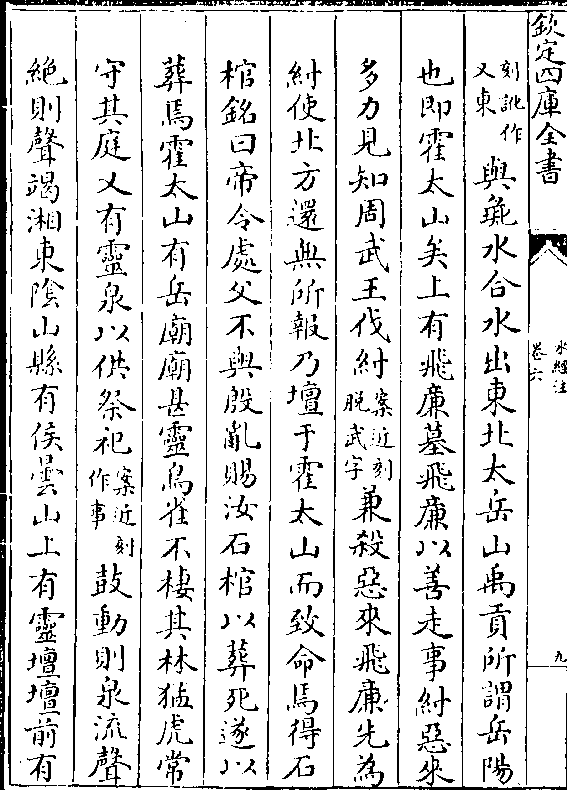 欽定四庫全書
水經注
卷六
九
刻訛作
又東
與彘水合水出東北太岳山禹貢所謂岳陽
也即霍太山矣上有飛廉墓飛廉以善走事紂惡來
多力見知周武王伐紂
案近刻
脱武字
兼殺惡來飛廉先為
紂使北方還無所報乃壇于霍太山而致命焉得石
棺銘曰帝令處父不與殷亂賜汝石棺以葬死遂以
葬焉霍太山有岳廟廟甚靈鳥雀不棲其林猛虎常
守其庭又有靈泉以供祭祀
案近刻
作事
鼓動則泉流聲
絶則聲竭湘東陰山縣有侯曇山上有靈壇壇前有